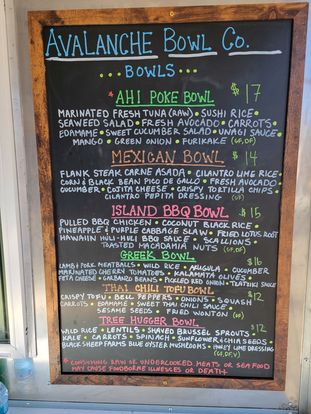 AVALANCHE BOWL CO.
BOWLS...
* AHI POKE BOWL $17
MARINATED FRESH TUNA (RAW) • SUSHI RICE •
SEAWEED SALAD • FRESH AVOCADO • CARROTS •
EDAMAME • SWEET CUCUMBER SALAD • UNAGI SAUCE
MANGO • GREEN ONION • FURIKAKE (GF, DF)
MEXICAN BOWL $14
FLANK STEAK CARNE ASADA • CILANTRO LIME RICE
CORN & BLACK BEAN PICO DE GALLO • FRESH AVOCADO
CUCUMBER • COJITA CHEESE • CRISPY TORTILLA CHIPS
CILANTRO PEPITA DRESSING (GF)
ISLAND BBQ BOWL $15
PULLED BBQ CHICKEN • COCONUT BLACK RICE •
PINEAPPLE & PURPLE CABBAGE SLAW • FRIED LOTUS ROOT
HAWAIIN HULI-HULI BBQ SAUCE • SCALLIONS •
TOASTED MACADAMIA NUTS (GF, DF)
GREEK BOWL $16
LAMB & PORK MEATBALLS • WILD RICE • ARUGULA • CUCUMBER
MARINATED CHERRY TOMATOES • KALAMATA OLIVES •
FETA CHEESE • GARBANZO BEANS • PICKLED RED ONION • TZATZIKI SAUCE
THAI CHILI TOFU BOWL $12
CRISPY TOFU • BELL PEPPERS • ONIONS • SQUASH
CARROTS • EDAMAME • SWEET THAI CHILI SAUCE •
SESAME SEEDS • FRIED WONTON
TREE HUGGER BOWL $12
WILD RICE • LENTILS • SHAVED BRUSSEL SPROUTS •
KALE • CARROTS • SPINACH • SUNFLOWER & CHIA SEEDS
BLACK SHEEP FARMS BLUE OYSTER MUSHROOMS • HONEY LIME DRESSING
* CONSUMING RAW OR UNDERCOOKED MEATS OR SEAFOOD
MAY CAUSE FOODBORNE ILLNESSES OR DEATH